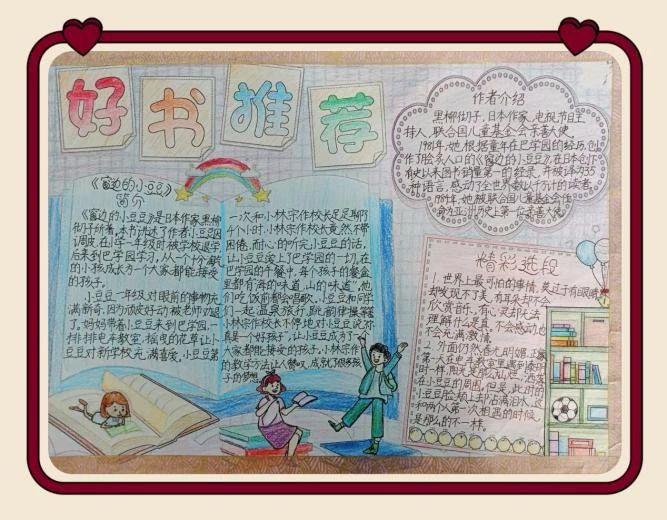 好书推荐
《窗边的小豆豆》
简介
《窗边的小豆豆》是日本作家黑柳
彻子所著。本书讲述了作者小豆豆因
调皮,在小学一年级时被学校退学,
后来到巴学园学习,从一个十分淘气
的小孩成长为一个大家都能接受
的孩子。
小豆豆一年级对眼前的事物充
满新奇,因为顽皮好动被老师劝退
了。妈妈带着小豆豆来到巴学园,一
排排电车教室,摇曳的花草让小
豆豆对新学校充满喜爱,小豆豆第
一次和小林宗作校长足足聊了
4个小时,小林宗作校长竟然不带
困倦,耐心的听完小豆豆的话,
让小豆豆爱上了巴学园的一切,在
巴学园的午餐中,每个孩子的餐盒
里都有海的味道、山的味道,他
们吃饭前都会唱歌,小豆豆和同学
们一起温泉旅行,跳韵律操等等
小林宗作校长不停地对小豆豆说:你
真是一个好孩子,让小豆豆成为了一个
大家都能接受的孩子。小林宗作
的教学方法让人赞叹,成就了很多孩
子的梦想
作者介绍
黑柳彻子,日本作家,电视节目主
持人,联合国儿童基金会亲善大使。
1981年,她根据童年在巴学园的经历,创
作了脍炙人口的《窗边的小豆豆》,在日本创下
有史以来图书销量第一的登录,并被译为35
种语言,感动了全世界数以千万计的读者。
1984年,她被联合国儿童基金会任
命为亚洲历史上第一位亲善大使。
精彩选段
1.世界上最可怕的事情,莫过于有眼睛
却发现不了美,有耳朵却不会
欣赏音乐,有心灵却无法
理解什么是真,不会感动,也
不会充满激情。
2.外面仍然春光明媚,正像
第一次在电车教室里遇到泰明
时一样,阳光是那么
在小豆豆的周围。但是,此时的
小豆豆脸颊上却沾满泪水,这
和两个人第一次相遇的时候,
是那么的不一样。